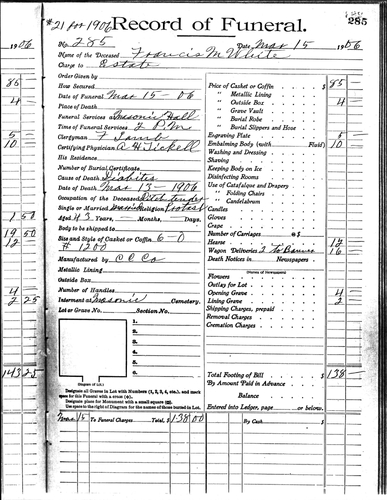 #21 for 1906
Record of Funeral.
285
1906
No. 285
Date Mar 15 1906
Name of the Deceased Francis M White
Charge to Estate
Order Given by
How Secured
Date of Funeral Mar 15-06
Place of Death
Funeral Services at Masonic Hall
Time of Funeral Services 2 P.M.
Clergyman F Lamb
Certifying Physician A H Tickell
His Residence
Number of Burial Certificate
Cause of Death Diabitis
Date of Death Mar 13-1906
Occupation of the Deceased Ditch tender
Single or Married Married Religion Protest
Aged 43 Years, — Months, — Days.
Body to be shipped to
Size and Style of Casket or Coffin 6-0
#1200
Manufactured by C C Co
Metallic Lining
Outside Box
Number of Handles
Interment at Masonic Cemetery.
Lot or Grave No. Section No.
1.
2.
3.
4.
5.
6.
(Diagram of Lot.)
Designate all Graves in Lot with Numbers (1, 2, 3, 4, etc.), and mark
space for this Funeral with a cross (+).
Designate place for Monument with a small square (□).
Use space to the right of Diagram for the names of those buried in Lot.
Mar 15 To Funeral Charges Total, $ 138 00
85
4
5
10
1 50
19 50
12
4
2 25
143 25
Price of Casket or Coffin $ 85 —
" Metallic Lining
" Outside Box 4 —
" Grave Vault
" Burial Robe
" Burial Slippers and Hose
Engraving Plate 5 —
Embalming Body (with Fluid) 10 —
Washing and Dressing
Shaving
Keeping Body on Ice
Disinfecting Rooms
Use of Catafalque and Drapery
" Folding Chairs
" Candelabrum
Candles
Gloves
Crape
Number of Carriages @ $
Hearse 12 —
Wagon Deliveries 16
Death Notices in Newspapers
(Names of Newspapers)
Flowers
Outlay for Lot
Opening Grave 4 —
Lining Grave 2
Shipping Charges, prepaid
Removal Charges
Cremation Charges
Total Footing of Bill $ 138 —
By Amount Paid in Advance
Balance
Entered into Ledger, page or below.
By Cash $